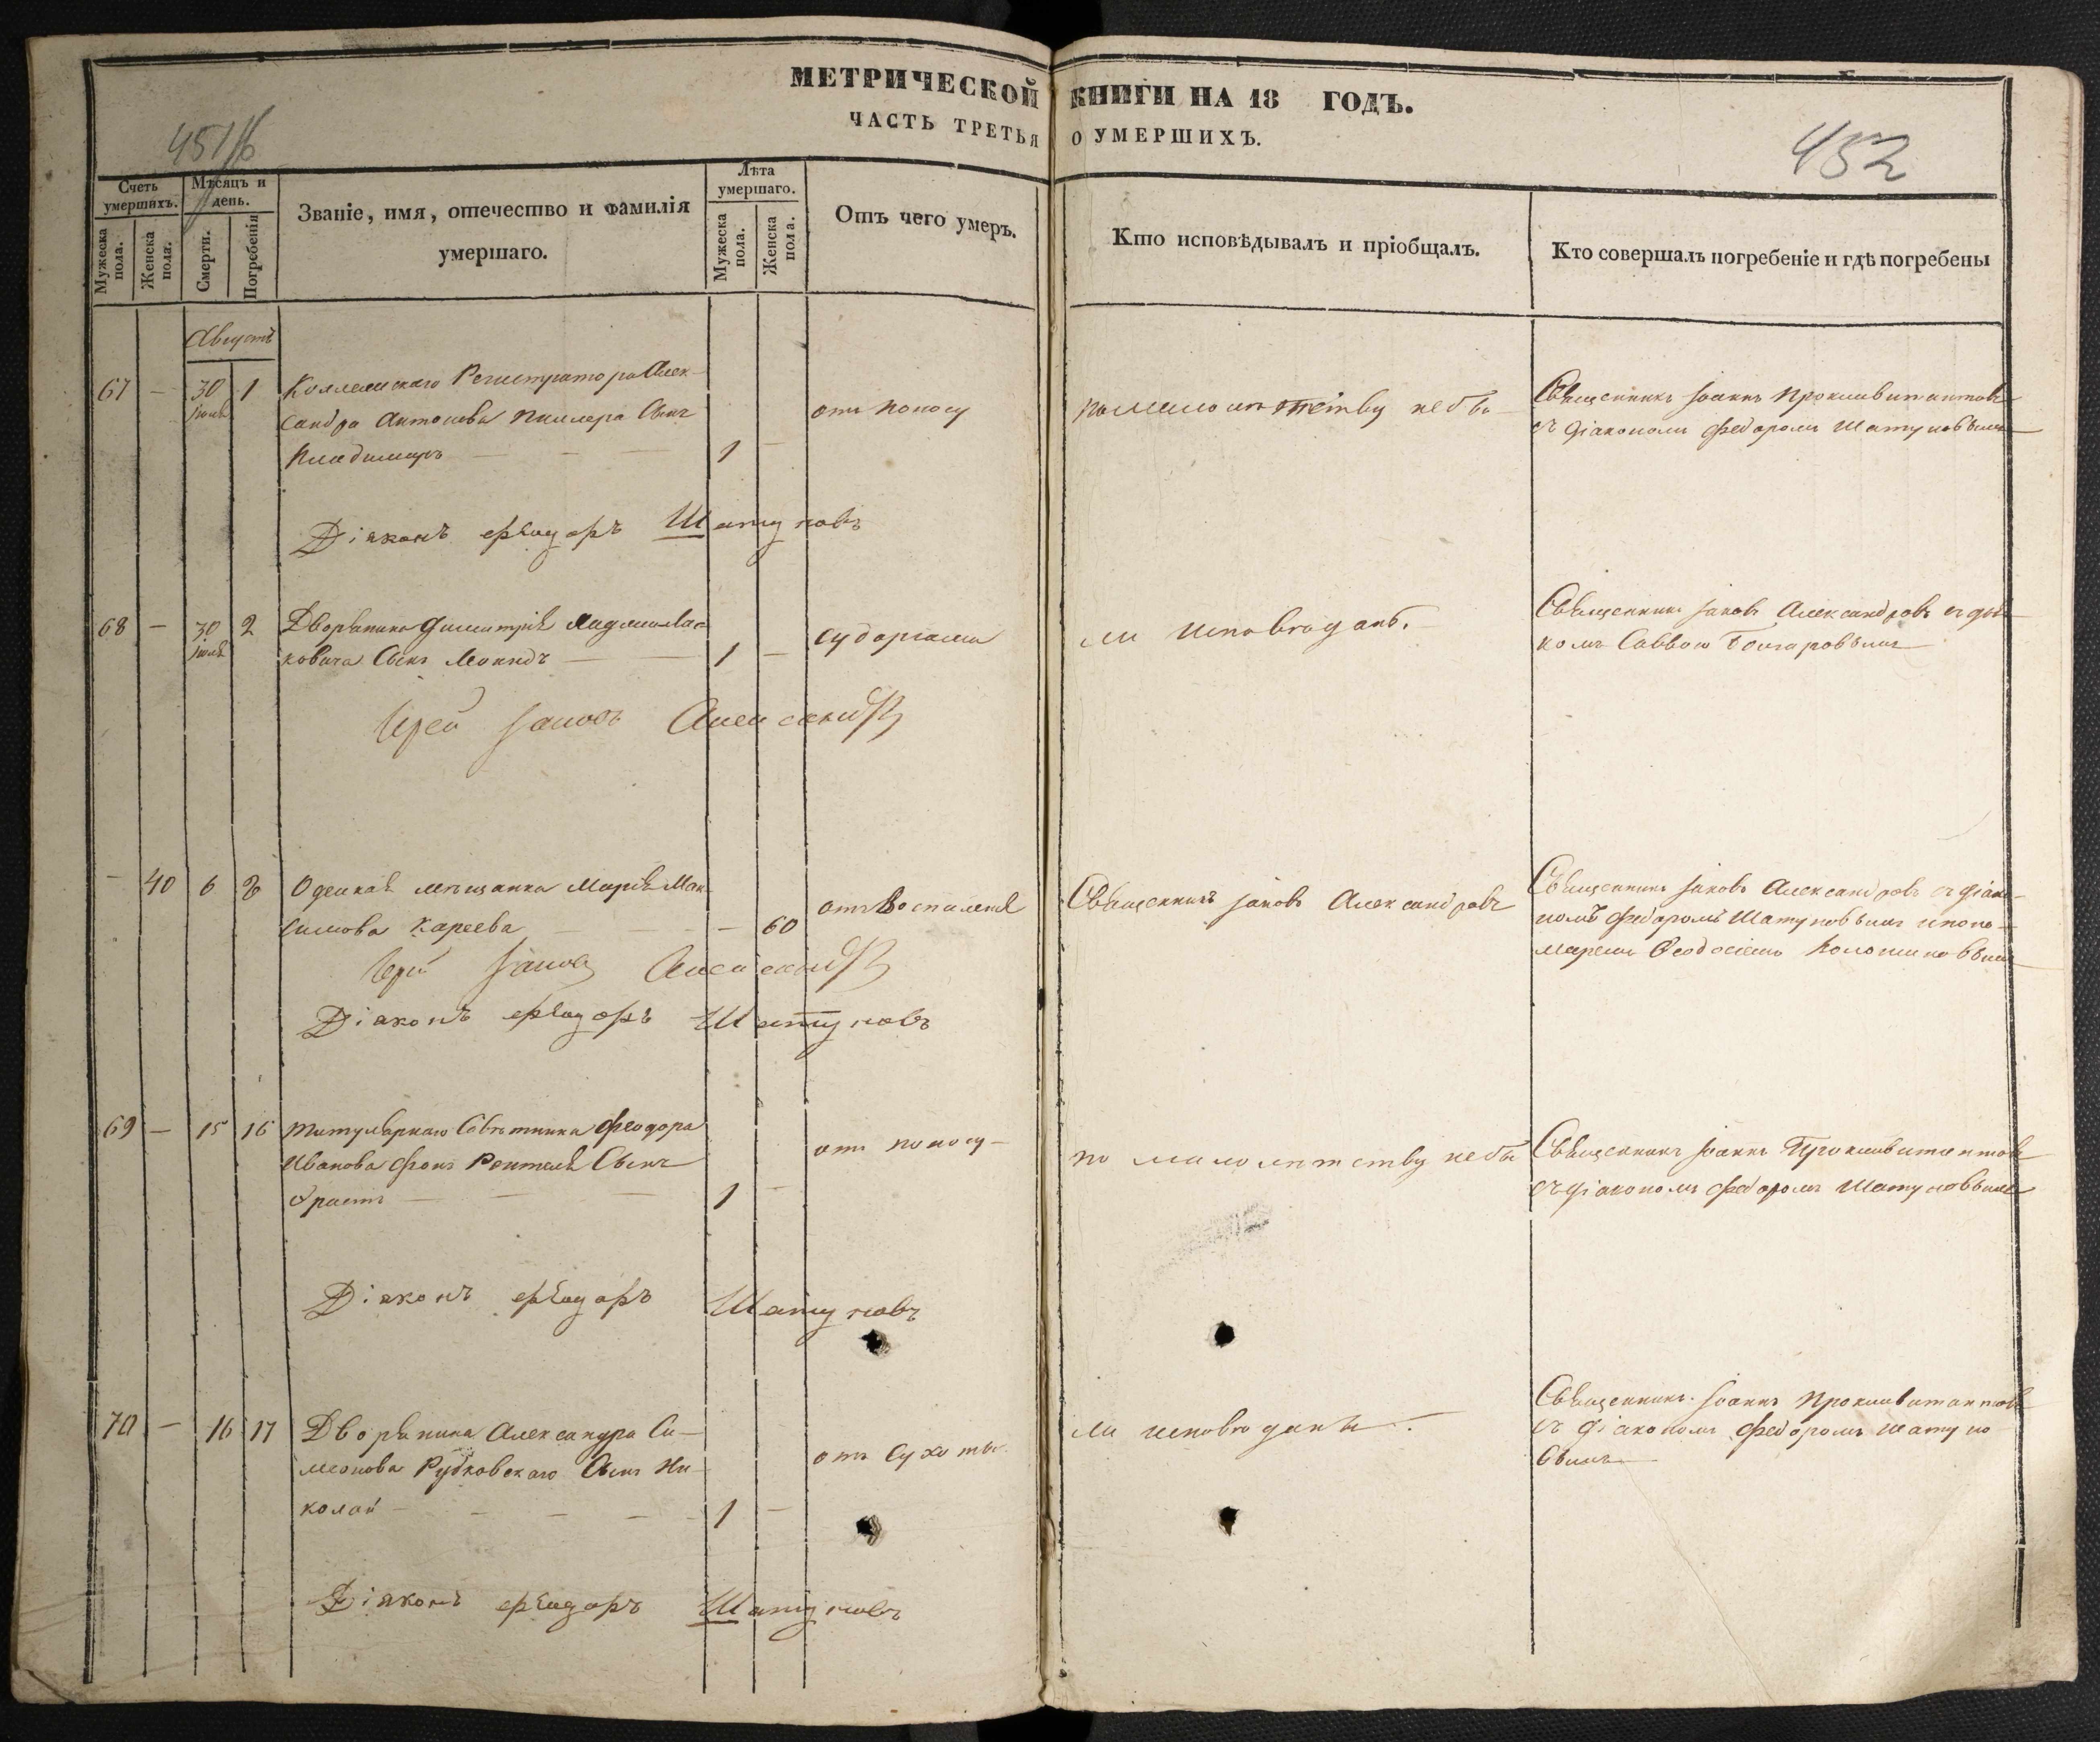 МЕТРИЧЕСКОЙ КНИГИ НА 18 ГОДЪ.
ЧАСТЬ ТРЕТЬЯ О УМЕРШИХЪ.
451/б
452
Счетъ умершихъ.
Мужеска пола.
Женска пола.
Мѣсяцъ и день.
Смерти.
Погребенія
Званіе, имя, отечество и фамилія
умершаго.
Лѣта умершаго.
Мужеска пола.
Женска пола.
Отъ чего умеръ.
Кто исповѣдывалъ и пріобщалъ.
Кто совершалъ погребеніе и гдѣ погребены
Августъ
67 — 30 1 Коллежскаго Регистратора Алек-
сандра Антонова Сынъ
Владимиръ — — — 1 —
отъ поносу
по малолѣтству не бы-
Священникъ Іоаннъ
съ Діакономъ Федоромъ Шатуновымъ
Діаконъ Ѳеодоръ Шатуновъ
68 — 30 2 Дворянина Димитрія
ковича Сынъ — — 1 —
судоргами
ли исповѣданъ.
Священникъ Іаковъ Александровъ съ дья-
комъ Саввою
Іерей Іаковъ Александр
— 40 6 8 Одесская мѣщанка Марія Мак-
симова Кареева — — — 60
отъ воспаленія
Священникъ Іаковъ Александровъ
Священникъ Іаковъ Александровъ съ Діако-
номъ Федоромъ Шатуновымъ и поно-
маремъ Ѳеодосіемъ
Іерей Іаковъ Александр
Діаконъ Ѳеодоръ Шатуновъ
69 — 15 16 Титулярнаго Совѣтника Феодора
Иванова фонъ Сынъ
Эрастъ — — — 1 —
отъ поносу —
по малолѣтству не бы
Священникъ Іоаннъ
съ Діакономъ Федоромъ Шатуновымъ
Діаконъ Ѳеодоръ Шатуновъ
70 — 16 17 Дворянина Александра Си-
меонова Рудковскаго Сынъ Ни-
колай — — — — 1 —
отъ Сухоты
ли исповѣданы.
Священникъ Іоаннъ
съ Діакономъ Федоромъ Шатуно-
вымъ
Діаконъ Ѳеодоръ Шатуновъ